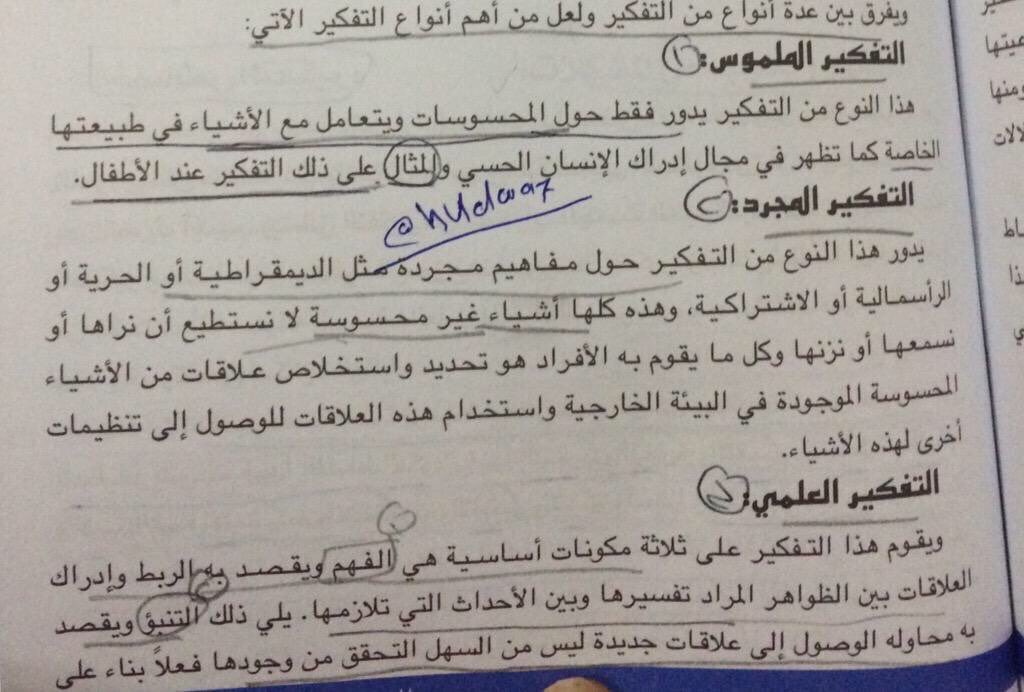 ويفرق بين عدة أنواع من التفكير ولعل من أهم أنواع التفكير الآتي:
التفكير الملموس: ١
هذا النوع من التفكير يدور فقط حول المحسوسات ويتعامل مع الأشياء في طبيعتها
الخاصة كما تظهر في مجال إدراك الإنسان الحسي والمثال على ذلك التفكير عند الأطفال.
التفكير المجرد: ٢
يدور هذا النوع من التفكير حول مفاهيم مجردة مثل الديمقراطية أو الحرية أو
الرأسمالية أو الاشتراكية، وهذه كلها أشياء غير محسوسة لا نستطيع أن نراها أو
نسمعها أو نزنها وكل ما يقوم به الأفراد هو تحديد واستخلاص علاقات من الأشياء
المحسوسة الموجودة في البيئة الخارجية واستخدام هذه العلاقات للوصول إلى تنظيمات
أخرى لهذه الأشياء.
التفكير العلمي:
ويقوم هذا التفكير على ثلاثة مكونات أساسية هي الفهم ويقصد به الربط وإدراك
العلاقات بين الظواهر المراد تفسيرها وبين الأحداث التي تلازمها. يلي ذلك التنبؤ ويقصد
به محاوله الوصول إلى علاقات جديدة ليس من السهل التحقق من وجودها فعلاً بناء على